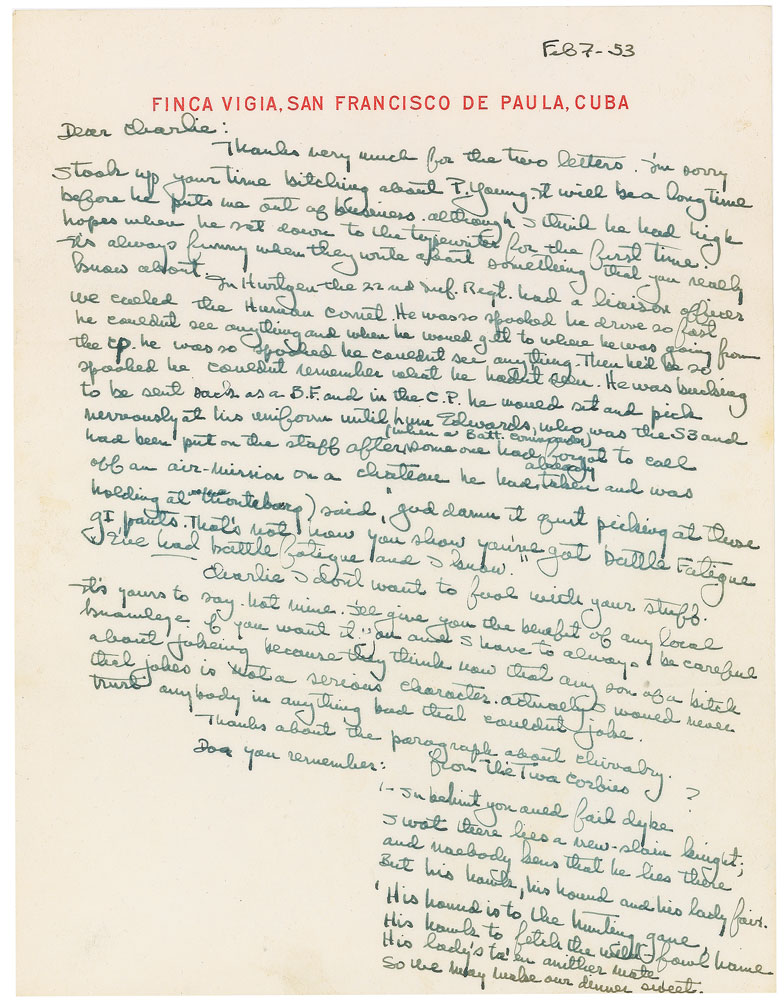 Feb 7 - 53
FINCA VIGIA, SAN FRANCISCO DE PAULA, CUBA
Dear Charlie:
Thanks very much for the two letters. I'm sorry
I took up your time bitching about P. Young. It will be a long time
before he puts me out of business. although I think he had high
hopes when he sat down to the typewriter for the first time.
It's always funny when they write about something that you really
know about. In Hurtgen the 22nd Inf. Regt. had a liaison officer
we called the Human Comet. He was so spooked he drove so fast
he couldn't see anything and when he would get to where he was going from
the CP. he was so spooked he couldn't see anything. Then he'd be so
spooked he couldn't remember what he hadn't seen. He was bucking
to be sent back as a B.F. and in the C.P. he would sit and pick
nervously at his uniform until Lum Edwards, who was the S3 and
(when a Batt. Commander)
had been put on the staff after someone had forgot to call
already
off an air-mission on a chateau he had taken and was
holding at ) said, "god damn it quit picking at those
GI pants. That's not how you show you've got Battle Fatigue
I've had battle fatigue and I know."
Charlie I don't want to fool with your stuff.
It's yours to say. not mine. I'll give you the benefit of any local
knowledge if you want it. and I have to always be careful
about jokeing because they think now that any son of a bitch
that jokes is not a serious character. actually I would never
trust anybody in anything bad that couldn't joke.
Thanks about the paragraph about chivalry.
Doa you remember: from The Twa Corbies ?
'- In behint yon auld fail dyke
I wot there lies a new-slain knight;
and naebody kens that he lies there
But his hawk, his hound and his lady fair.
'His hound is to the hunting gane,
His hawk to fetch the wild-fowl hame
His lady's ta'en anither mate
So we may make our dinner sweet.